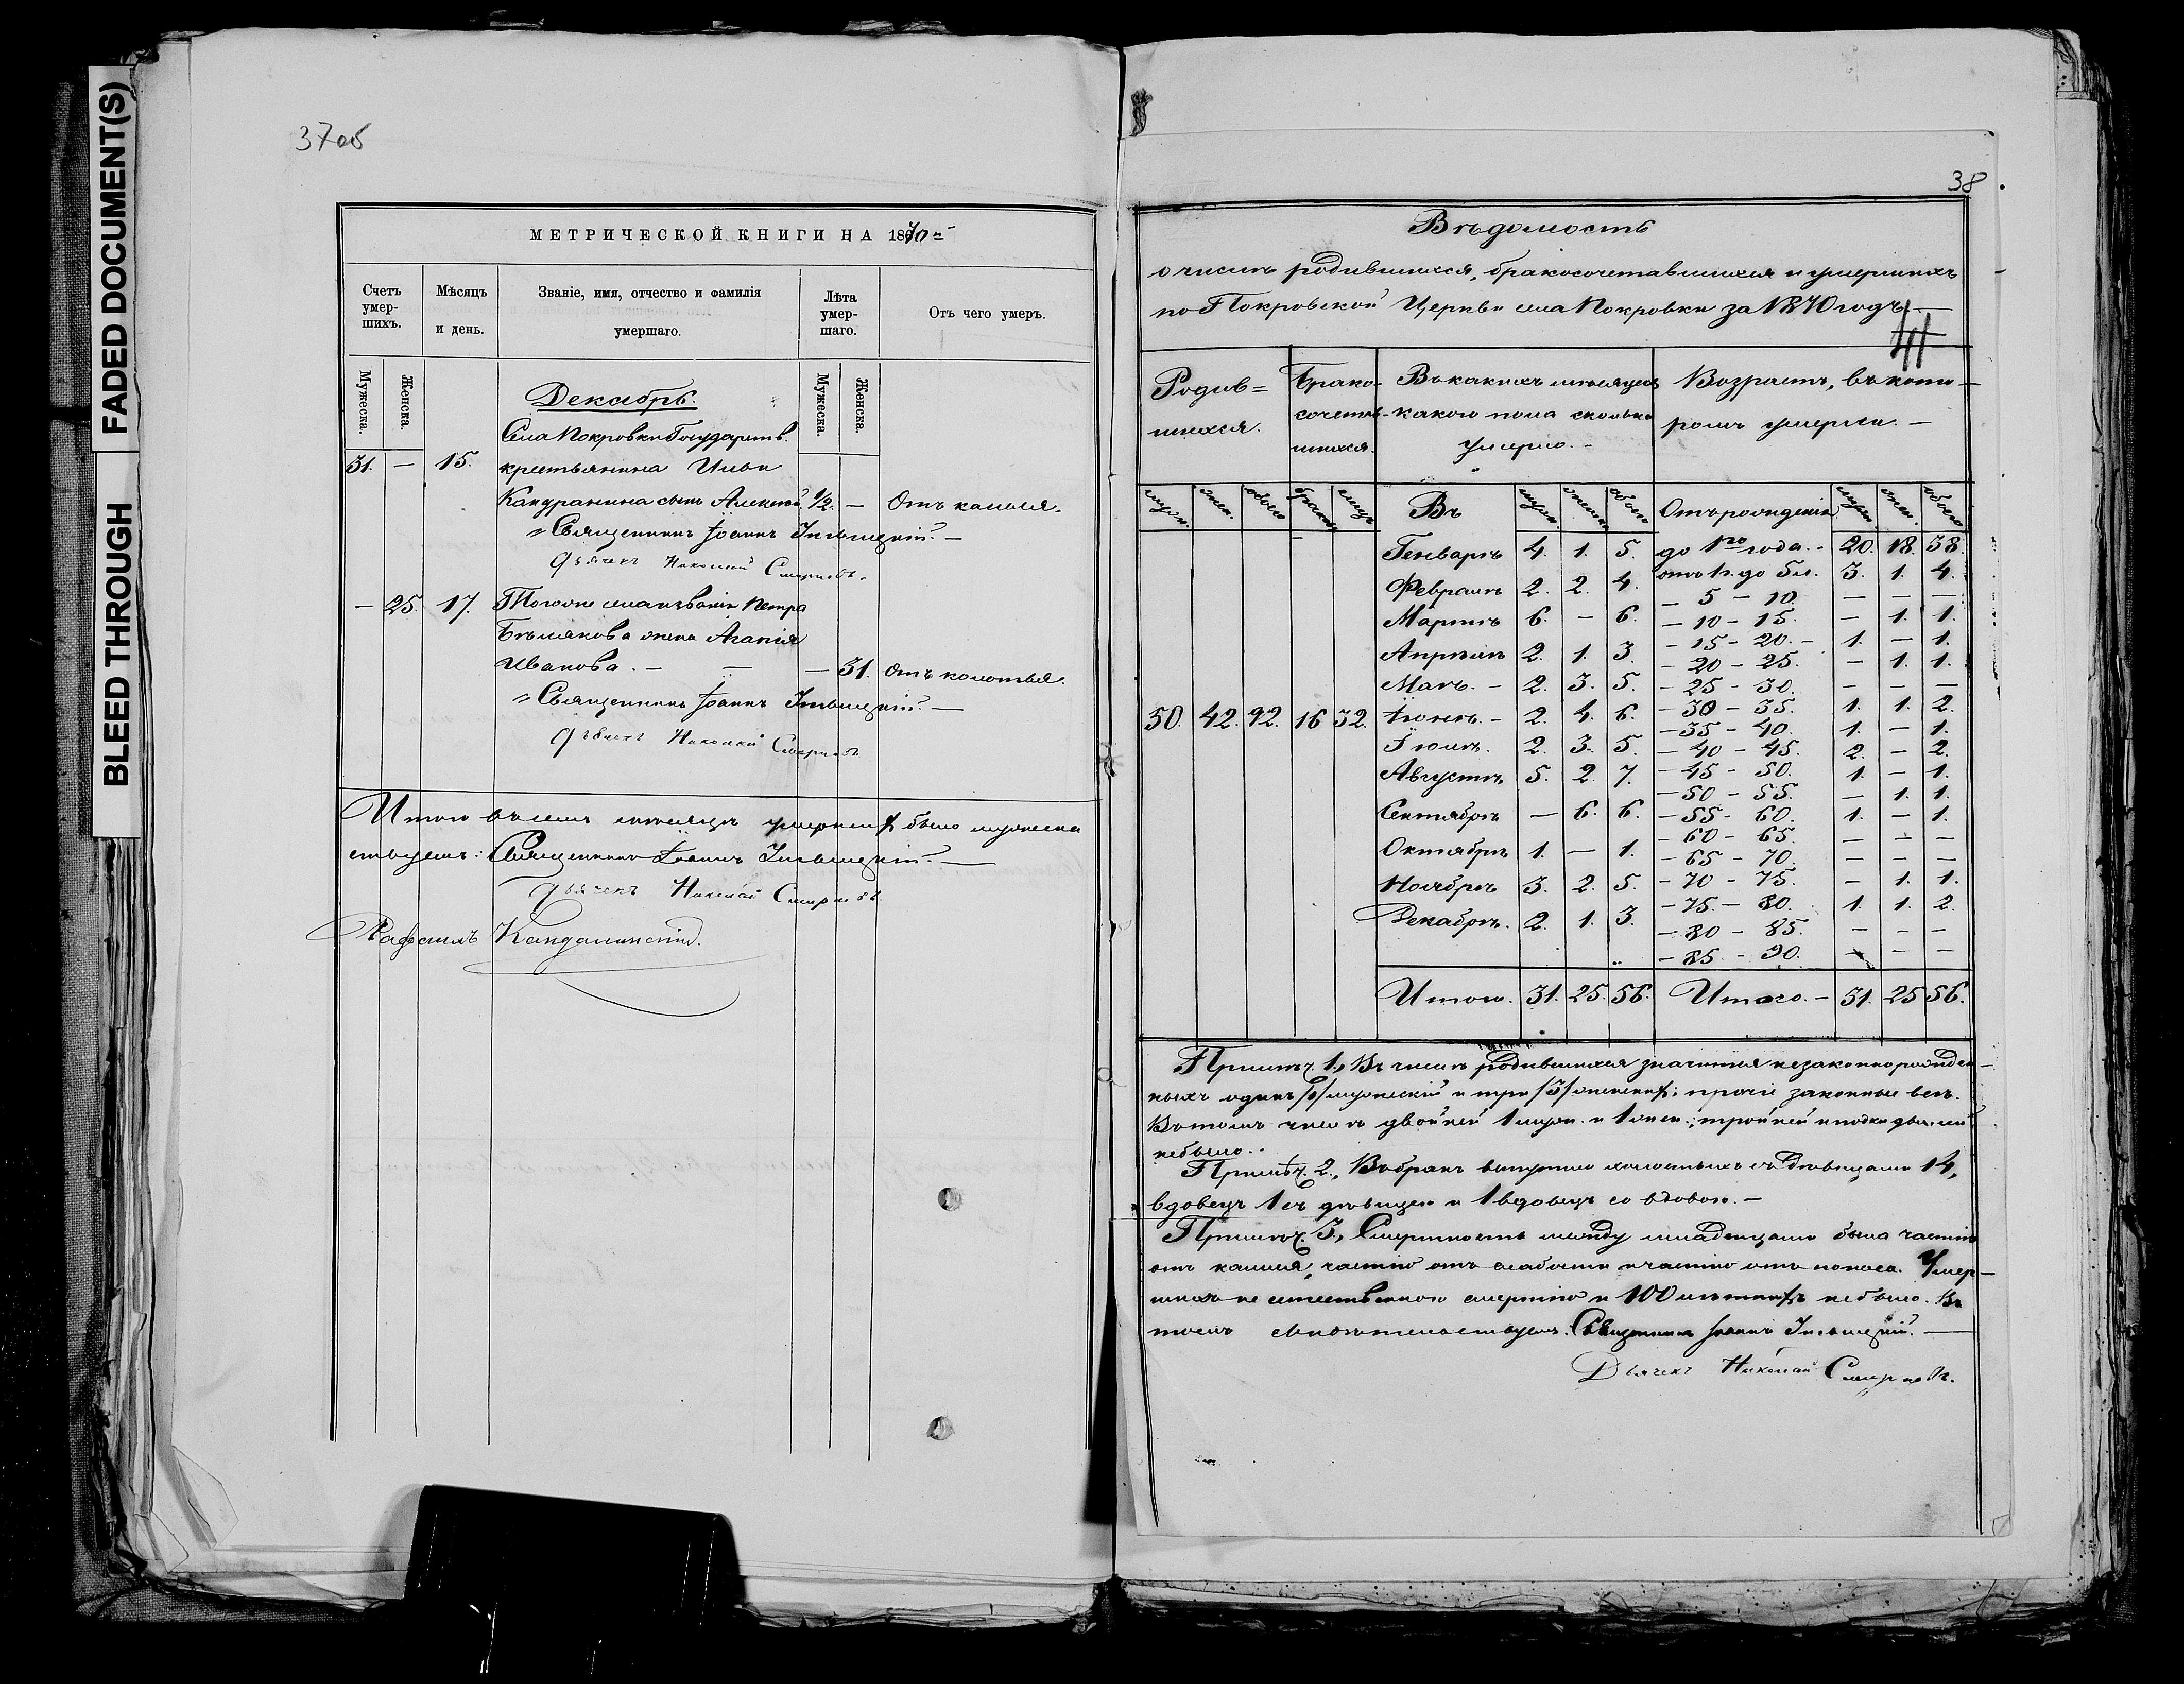 BLEED THROUGH
FADED DOCUMENT(S)
37об
МЕТРИЧЕСКОЙ КНИГИ НА 1870 г.
Счетъ умер-шихъ.
Мѣсяцъ и день.
Званіе, имя, отчество и фамилія умершаго.
Лѣта умер-шаго.
Отъ чего умеръ.
Мужеска.
Женска.
Мужеска.
Женска.
Декабрь.
Села Покровки Государств.
31. — 15. крестьянина Ильи
Кандранина сынъ Алексѣй. 1/2. — Отъ кашля.
Священникъ Іоаннъ
Дьячекъ Николай Смирновъ.
— 25. 17. Тогоже села и званія Петра
Бѣлякова жена Агапія
Иванова. — — — 31. Отъ колотья.
Священникъ Іоаннъ
Дьячекъ Николай Смирновъ
Итого въ семъ мѣсяцѣ умершихъ было мужеска
Священникъ Іоаннъ
Дьячекъ Николай Смирновъ
Кандалинскій.
38
Вѣдомость
о числѣ родившихся, бракосочетавшихся и умершихъ
по Покровской Церкви села Покровки за 1870 годъ.
Родив=
шихся.
Брако-
сочетав-
шихся.
Въ какихъ мѣсяцахъ
какого пола сколько
умерло. -
Возрастъ, въ кото-
ромъ умерли. —
муж. жен. обоего браков лицъ Въ муж. женск обоего Отъ рожденія муж жен. обоего
Генварѣ 4. 1. 5. до 1го года. - 20. 18. 38.
Февралѣ 2. 2. 4. отъ 1 г. до 5 л. 3. 1. 4.
— 5 — 10 — — —
Мартѣ 6. — 6. — 10 - 15. — 1. 1.
— 15 - 20. - 1. — 1.
Апрѣлѣ 2. 1. 3. — 20 - 25. — 1. 1.
Маѣ. - 2. 3. 5. — 25 - 30. — — —
50. 42. 92. 16 32. Іюнѣ. - 2. 4. 6. — 30 - 35. 1. 1. 2.
— 35 - 40. 1. — 1.
Іюлѣ. 2. 3. 5. — 40 - 45. 2. — 2.
Августѣ 5. 2. 7. — 45 - 50. 1. — 1.
— 50 - 55. — 1. 1.
Сентябрѣ — 6. 6. — 55 - 60. 1. — 1.
— 60 - 65. — — —
Октябрѣ 1. — 1. — 65 - 70. — — —
Ноябрѣ 3. 2. 5. — 70 - 75. — 1. 1.
— 75. - 80. 1. 1. 2.
Декабрѣ. 2. 1. 3. — 80 - 85. — — —
— 85. - 90. — — —
Итого. 31. 25. 56. Итого. - 31. 25 56.
Примѣч. 1., Въ числѣ родившихся значится незаконнорожден-
ныхъ одинъ /1/ мужескій и три /3/ женскихъ; прочіе законные всѣ.
Въ томъ числѣ двойней 1 муж. и 1 жен.; тройней и подкидышей
не было. .
Примѣч. 2., Въ бракъ вступило холостыхъ съ дѣвицами 14,
вдовецъ 1 съ дѣвицею и 1 вдовецъ со вдовою. —
Примѣч. 3., Смертность между младенцами была частію
отъ кашля, частію отъ слабости и частію отъ поноса. Умер-
шихъ не естественною смертію и 100 лѣтнихъ не было. Въ
томъ свидѣтельствуемъ: Священникъ Іоаннъ
Дьячекъ Николай Смирновъ.